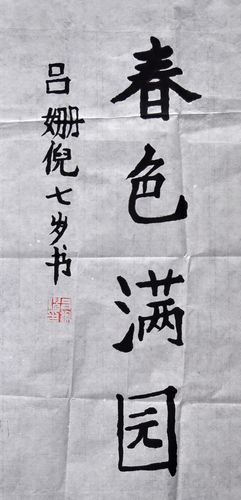 春色满园
吕姗倪七岁书